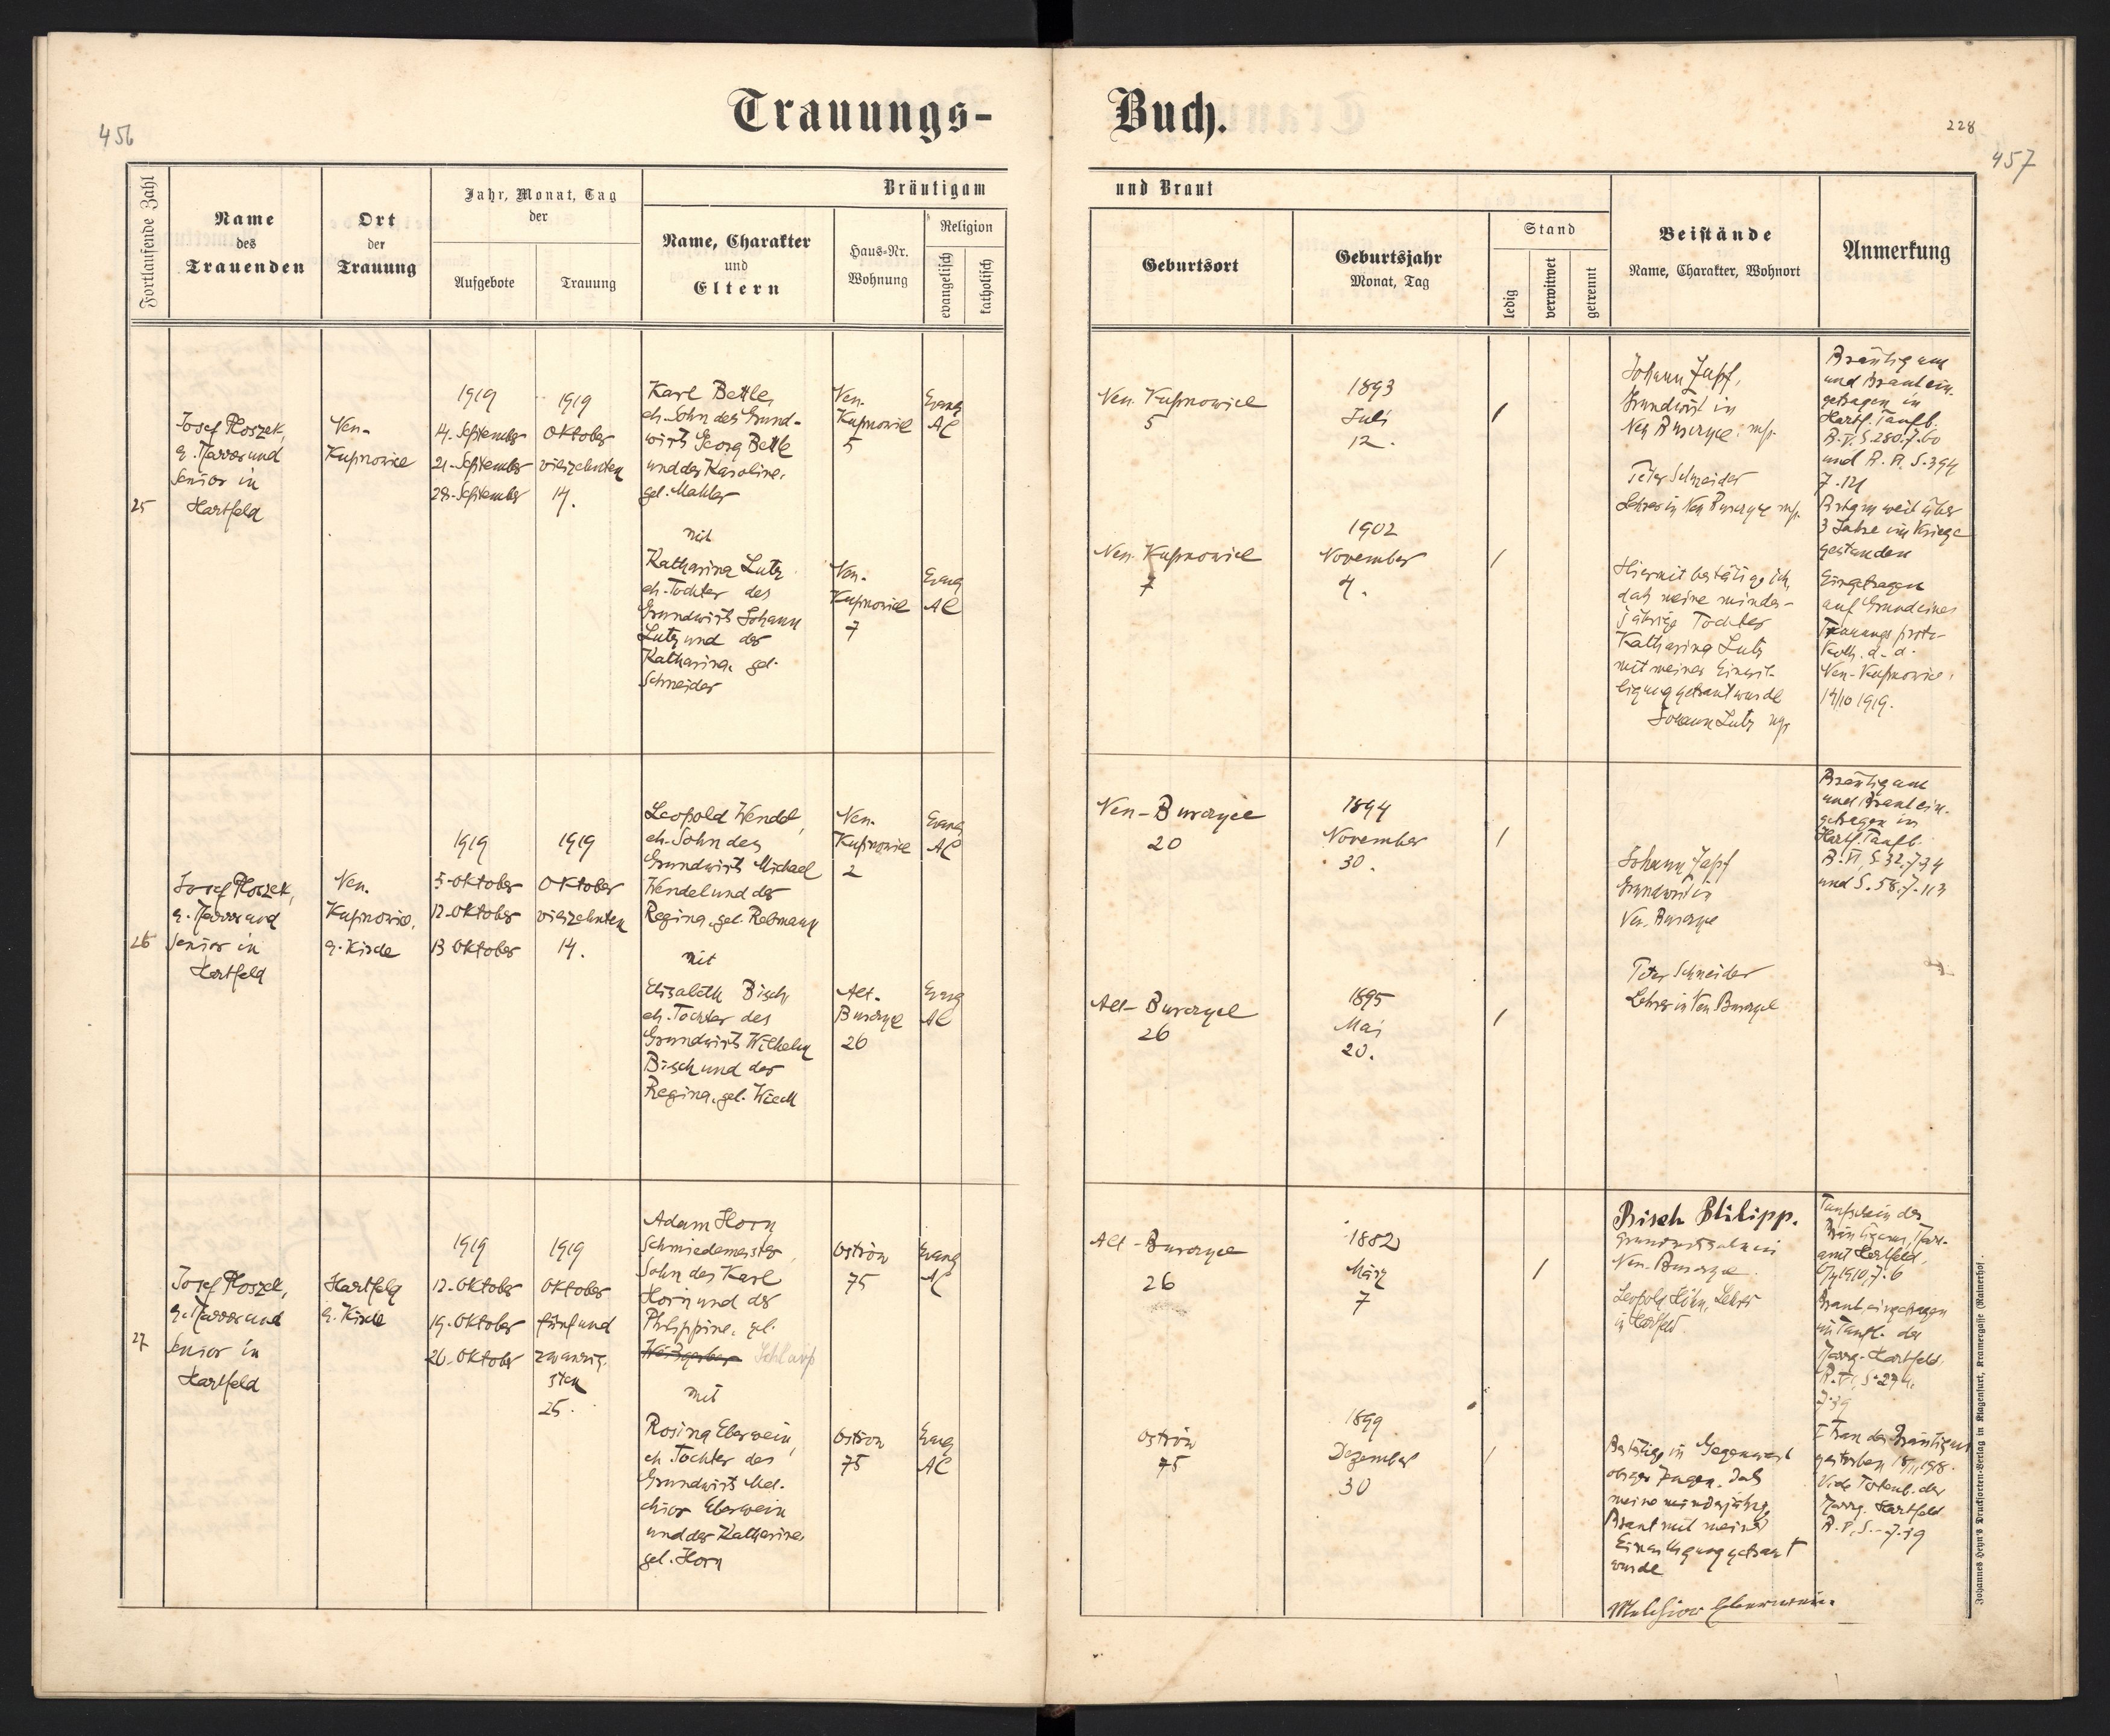 Trauungs-
Buch.
456
228
457
Fortlaufende Zahl
Name
des
Trauenden
Ort
der
Trauung
Jahr, Monat, Tag
der
Aufgebote
Trauung
Bräutigam
Name, Charakter
und
Eltern
Haus-Nr.
Wohnung
Religion
evangelisch
katholisch
und Braut
Geburtsort
Geburtsjahr
Monat, Tag
Stand
ledig
verwitwet
getrennt
Beistände
Name, Charakter, Wohnort
Anmerkung
25
Josef Ploszek,
e. Pfarrer und
Senior in
Hartfeld
Neu-
Kupnowice
1919
14. September
21. September
28. September
1919
Oktober
vierzehnten
14.
Karl Bettle,
eh. Sohn des Grund-
wirts Georg Bettle
und der Karoline,
geb. Mahler
mit
Katharina Lutz
eh. Tochter des
Grundwirts Johann
Lutz und der
Katharina, geb.
Schneider
Neu-
Kupnowice
5
Evang
AC
Neu-
Kupnowice
7
Evang
AC
Neu-Kupnowice
5
1893
Juli
12.
Neu-Kupnowice
7
1902
November
4.
Johann Zapf,
Grundwirt in
Neu Burczyce mp.
Peter Schneider
Lehrer in Neu Burczyce mp.
Hiermit bestätige ich,
daß meine minder-
jährige Tochter
Katharina Lutz
mit meiner Einwil-
ligung getraut wurde
Johann Lutz mp
Bräutigam
und Braut ein-
getragen in
Hartf. Taufb.
B. V, S. 280. Z. 60
und S. 394
Z. 121
Btgm weit über
3 Jahre im Kriege
gestanden
Eingetragen
auf Grund eines
Trauungsproto-
koll. d. d.
Neu-Kupnowice,
14/10 1919.
26
Josef Ploszek,
e. Pfarrer und
Senior in
Hartfeld
Neu-
Kupnowice,
e. Kirche
1919
5. Oktober
12. Oktober
13 Oktober
1919
Oktober
vierzehnten
14.
Leopold Wendel,
eh. Sohn des
Grundwirts Michael
Wendel und der
Regina, geb. Rebmann
mit
Elisabeth Bisch,
eh. Tochter des
Grundwirts Wilhelm
Bisch und der
Regina, geb.
Neu-
Kupnowice
2
Evang
AC
Alt-
Burczyce
26
Evang
AC
Neu-Burczyce
20
1894
November
30.
Alt-Burczyce
26
1895
Mai
20.
Johann Zapf
Grundwirt in
Neu-Burczyce
Peter Schneider
Lehrer in Neu Burczyce
Bräutigam
und Braut ein-
getragen in
Hartf. Taufb.
B. VI, S. 32, Z. 34
und S. 58, Z. 113
27
Josef Ploszek,
e. Pfarrer und
Senior in
Hartfeld
Hartfeld
e. Kirche
1919
12. Oktober
19. Oktober
26. Oktober
1919
Oktober
fünfund
zwanzig-
sten
25.
Adam Horn
Schmiedemeister,
Sohn des Karl
Horn und der
Philippine, geb.
Weißgerber Schlaup
mit
Rosina Eberwein,
eh. Tochter des
Grundwirts Mel-
chior Eberwein
und der Katharina
geb. Horn
Ostrów
75
Evang
AC
Ostrów
75
Evang
AC
Alt-Burczyce
26
1882
März
7
Ostrów
75
1899
Dezember
30
Bisch Philipp.
Grundwirtssohn in
Neu-Burczyce
Leopold Höhn, Lehrer
in Hartfeld
Bestätige in Gegenwart
obiger Zeugen, daß
meine minderjährige
Braut mit meiner
Einwilligung getraut
wurde
Melchior Eberwein.
Taufschein des
Bräutigams, Pfarr-
amt Hartfeld,
1910, Z. 6
Braut eingetragen
im Taufb. der
Pfarrg. Hartfeld,
B. VI, S. 274.
Z. 39
I Frau des Bräutigams
gestorben 1918.
Vide Totenb. der
Pfarrg. Hartfeld
Johannes Heyn's Drucksorten-Verlag in Klagenfurt, Kramergasse (Rainerhof.